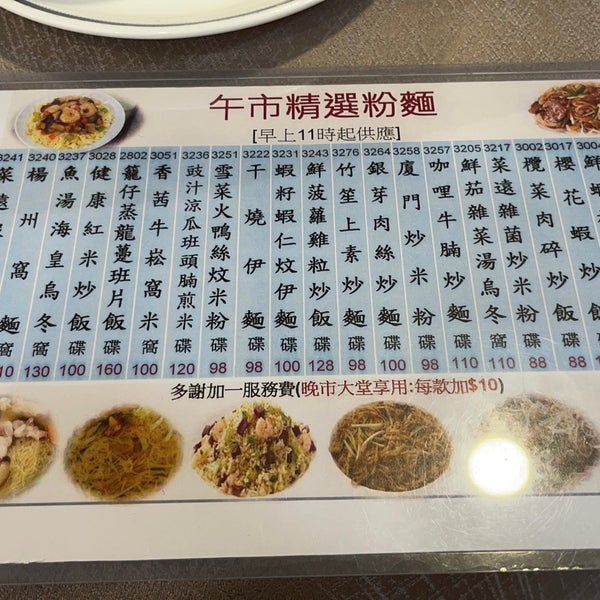 午市精選粉麵
[早上11時起供應]
3241 菜遠 窩麵 窩 110
3240 楊州窩麵 窩 130
3237 魚湯海皇烏冬 窩 100
3028 健康紅米炒飯 碟 110
2802 籠仔蒸龍躉班片飯 碟 160
3051 香茜牛崧窩米 窩 100
3236 豉汁涼瓜班頭腩煎米 碟 120
3251 雪菜火鴨絲炆米粉 碟 98
3222 干燒伊麵 碟 98
3231 蝦籽蝦仁炆伊麵 碟 100
3243 鮮菠蘿雞粒炒飯 碟 128
3276 竹笙上素炒麵 碟 98
3264 銀芽肉絲炒麵 碟 100
3258 廈門炒米粉 碟 98
3257 咖喱牛腩炒麵 碟 110
3205 鮮茄雜菜湯烏冬 窩 110
3217 菜遠雜菌炒麵 碟 110
3002 欖菜肉碎炒飯 碟 88
3017 櫻花蝦炒飯 碟 88
鮮蝦
多謝加一服務費(晚市大堂享用:每款加$10)